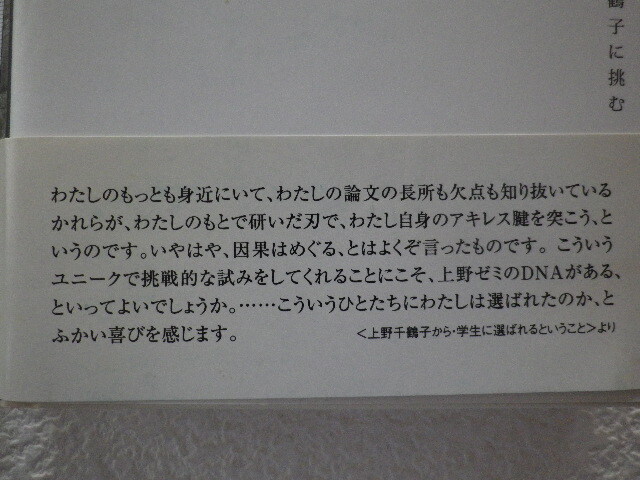 鶴子に挑む
わたしのもっとも身近にいて、わたしの論文の長所も欠点も知り抜いている
かれらが、わたしのもとで研いだ刃で、わたし自身のアキレス腱を突こう、と
いうのです。いやはや、因果はめぐる、とはよくぞ言ったものです。こういう
ユニークで挑戦的な試みをしてくれることにこそ、上野ゼミのDNAがある、
といってよいでしょうか。……こういうひとたちにわたしは選ばれたのか、と
ふかい喜びを感じます。
<上野千鶴子から・学生に選ばれるということ>より